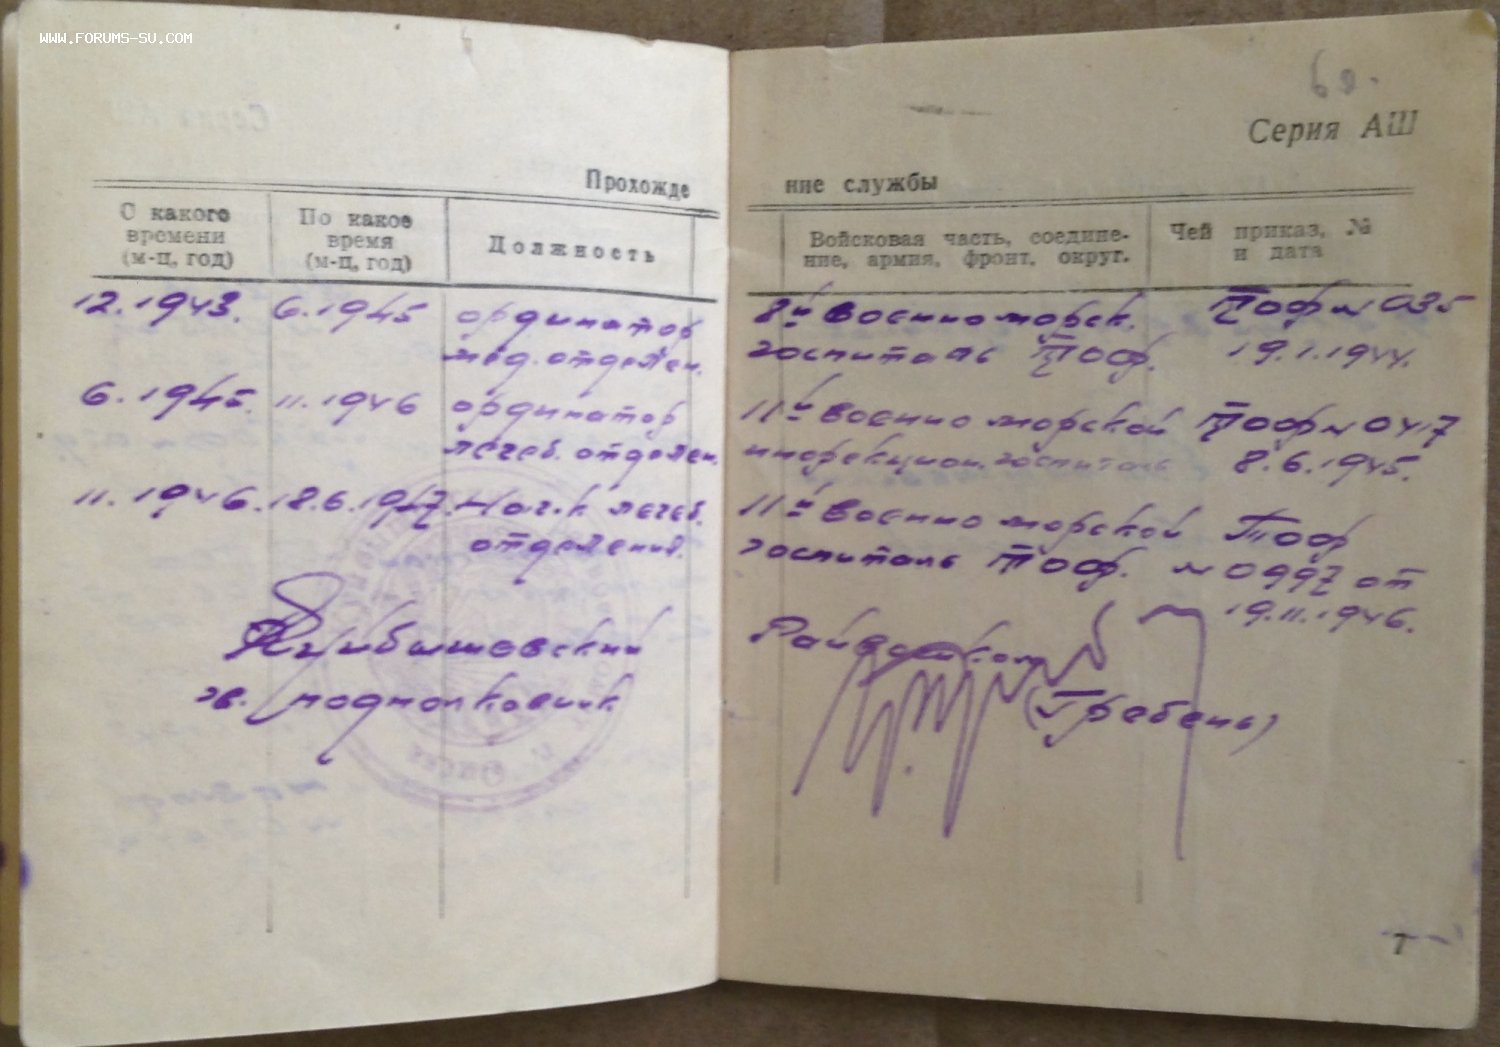 WWW.FORUMS-SU.COM
6
Серия АШ
Прохожде
ние службы
С какого времени (м-ц, год)
По какое время (м-ц, год)
Должность
Войсковая часть, соедине-
ние, армия, фронт, округ.
Чей приказ, №
и дата
12.1943. 6.1945 ординатор 8й Военно морск. Тоф № 035
мед. отделен. госпиталь Тоф. 19.1.1944.
6.1945. 11.1946 ординатор 11й Военно морской Тоф № 0417
лечеб. отделен. инфекцион. госпиталь 8.6.1945.
11.1946. 18.6.1947. Нач-к лечеб. 11й Военно морской Тоф
отделения. госпиталь Тоф. № 0997 от
19.11.1946.
Райвоенком
гв. подполковник (Гребень)
7